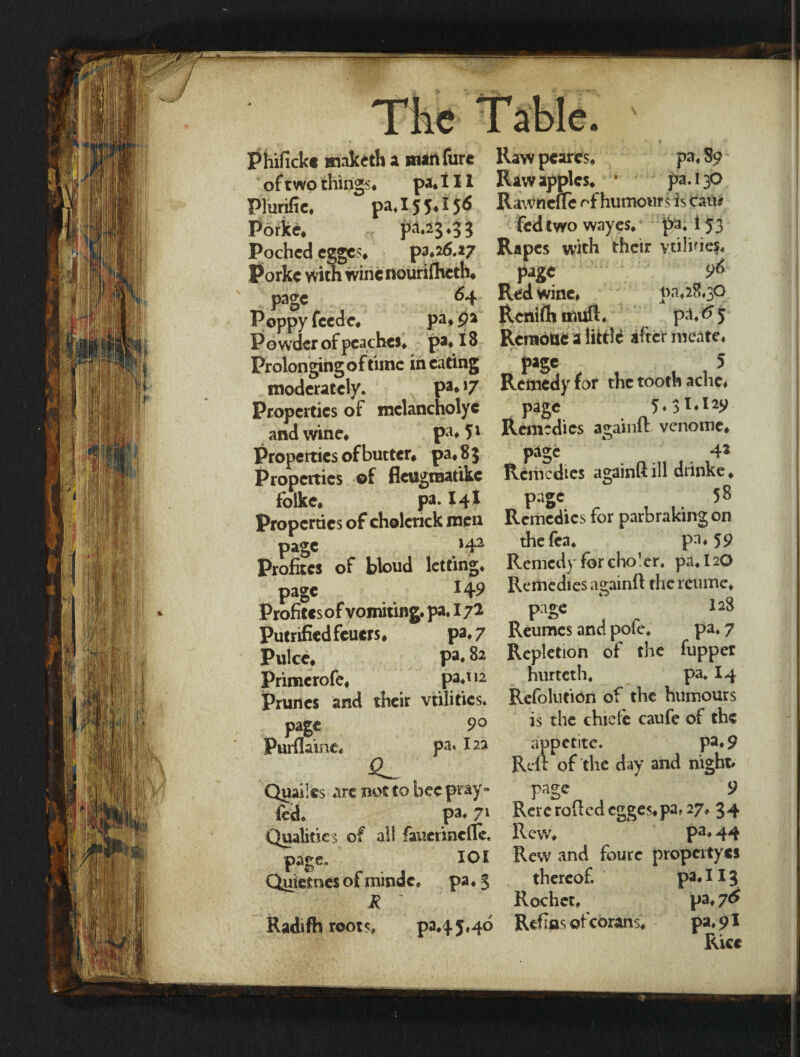 The Table.
Phiſicke maketh a man ſure
of two things. pa.111
Pluriſie. pa.155.156
Porke. pa.23.33
Poched egges. pa.26.27
Porke with wine nouriſheth.
page 64
Poppy ſeede. pa.92
Powder of peaches. pa.18
Prolonging of time in eating
moderately. pa.17
Properties of melancholye
and wine. pa.51
Properties of butter. pa.83
Properties of fleugmatike
folke. pa.141
Properties of cholerick men
page 142
Profites of bloud letting.
page 149
Profites of vomiting. pa.172
Putrified feuers. pa.7
Pulce. pa.82
Primeroſe. pa.112
Prunes and their vtilities.
page 90
Purſlaine. pa.122
Q
Quailes are not to bee pray-
ſed. pa.71
Qualities of all ſauerineſſe.
page. 101
Quietnes of minde. pa.3
R
Radiſh roots. pa.45.46
Raw peares. pa.89
Raw apples. pa.130
Rawneſſe of humours is cau-
ſed two wayes. pa.153
Rapes with their vtilities.
page 96
Red wine. pa.28.30
Reniſh muſt. pa.65
Remoue a little after meate.
page 5
Remedy for the tooth ache.
page 5.31.129
Remedies againſt venome.
page 42
Remedies againſt ill drinke.
page 58
Remedies for parbraking on
the ſea. pa.59
Remedy for choler. pa.120
Remedies againſt the reume.
page 128
Reumes and poſe. pa.7
Repletion of the ſupper
hurteth. pa.14
Reſolution of the humours
is the chiefe cauſe of the
appetite. pa.9
Reſt of the day and night.
page 9
Rere roſted egges. pa.27.34
Rew. pa.44
Rew and foure propertyes
thereof. pa.113
Rochet. pa.76
Reſins of corans. pa.91
Rice